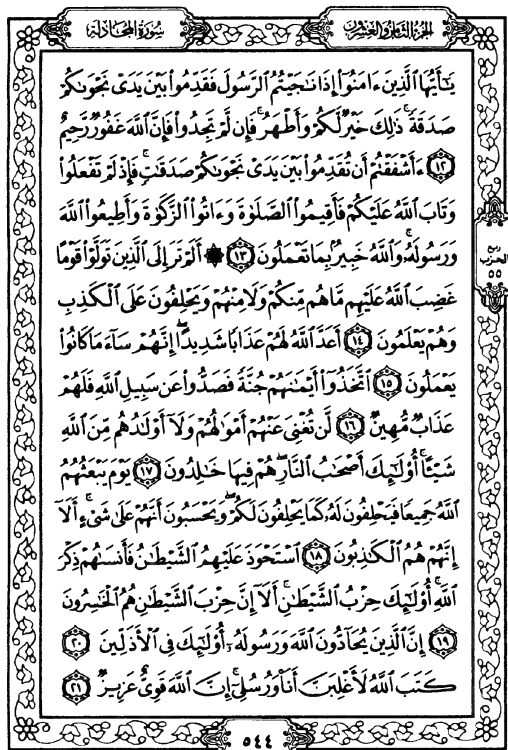 سُورَةُ المُجَادلة
الجُزْءُ الثَّامِنُ وَالعِشْرُونَ
يَٰٓأَيُّهَا ٱلَّذِينَ ءَامَنُوٓا۟ إِذَا نَٰجَيْتُمُ ٱلرَّسُولَ فَقَدِّمُوا۟ بَيْنَ يَدَىْ نَجْوَىٰكُمْ
صَدَقَةً ۚ ذَٰلِكَ خَيْرٌ لَّكُمْ وَأَطْهَرُ ۚ فَإِن لَّمْ تَجِدُوا۟ فَإِنَّ ٱللَّهَ غَفُورٌ رَّحِيمٌ
١٢ ءَأَشْفَقْتُمْ أَن تُقَدِّمُوا۟ بَيْنَ يَدَىْ نَجْوَىٰكُمْ صَدَقَٰتٍ ۚ فَإِذْ لَمْ تَفْعَلُوا۟
وَتَابَ ٱللَّهُ عَلَيْكُمْ فَأَقِيمُوا۟ ٱلصَّلَوٰةَ وَءَاتُوا۟ ٱلزَّكَوٰةَ وَأَطِيعُوا۟ ٱللَّهَ
وَرَسُولَهُۥ ۚ وَٱللَّهُ خَبِيرٌۢ بِمَا تَعْمَلُونَ ١٣ ۞ أَلَمْ تَرَ إِلَى ٱلَّذِينَ تَوَلَّوْا۟ قَوْمًا
غَضِبَ ٱللَّهُ عَلَيْهِم مَّا هُم مِّنكُمْ وَلَا مِنْهُمْ وَيَحْلِفُونَ عَلَى ٱلْكَذِبِ
وَهُمْ يَعْلَمُونَ ١٤ أَعَدَّ ٱللَّهُ لَهُمْ عَذَابًا شَدِيدًا ۖ إِنَّهُمْ سَآءَ مَا كَانُوا۟
يَعْمَلُونَ ١٥ ٱتَّخَذُوٓا۟ أَيْمَٰنَهُمْ جُنَّةً فَصَدُّوا۟ عَن سَبِيلِ ٱللَّهِ فَلَهُمْ
عَذَابٌ مُّهِينٌ ١٦ لَّن تُغْنِىَ عَنْهُمْ أَمْوَٰلُهُمْ وَلَآ أَوْلَٰدُهُم مِّنَ ٱللَّهِ
شَيْـًٔا ۚ أُو۟لَٰٓئِكَ أَصْحَٰبُ ٱلنَّارِ ۖ هُمْ فِيهَا خَٰلِدُونَ ١٧ يَوْمَ يَبْعَثُهُمُ
ٱللَّهُ جَمِيعًا فَيَحْلِفُونَ لَهُۥ كَمَا يَحْلِفُونَ لَكُمْ ۖ وَيَحْسَبُونَ أَنَّهُمْ عَلَىٰ شَىْءٍ ۚ أَلَآ
إِنَّهُمْ هُمُ ٱلْكَٰذِبُونَ ١٨ ٱسْتَحْوَذَ عَلَيْهِمُ ٱلشَّيْطَٰنُ فَأَنسَىٰهُمْ ذِكْرَ
ٱللَّهِ ۚ أُو۟لَٰٓئِكَ حِزْبُ ٱلشَّيْطَٰنِ ۚ أَلَآ إِنَّ حِزْبَ ٱلشَّيْطَٰنِ هُمُ ٱلْخَٰسِرُونَ
١٩ إِنَّ ٱلَّذِينَ يُحَآدُّونَ ٱللَّهَ وَرَسُولَهُۥٓ أُو۟لَٰٓئِكَ فِى ٱلْأَذَلِّينَ ٢٠
كَتَبَ ٱللَّهُ لَأَغْلِبَنَّ أَنَا۠ وَرُسُلِىٓ ۚ إِنَّ ٱللَّهَ قَوِىٌّ عَزِيزٌ ٢١
ربع
الحزب
٥٥
٥٤٤